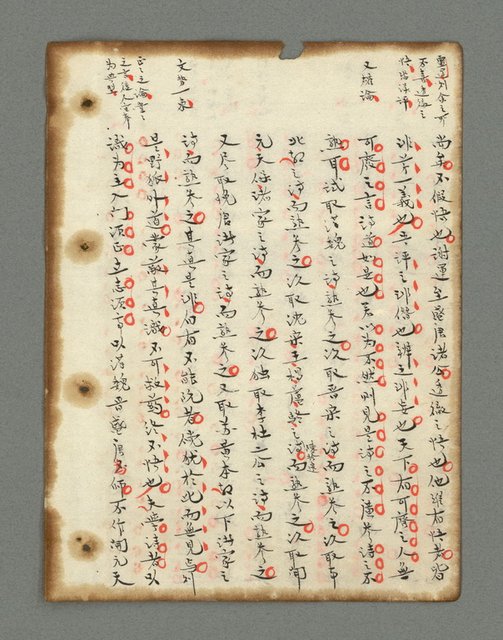 尚矣不假悟也謝運至盛唐諸公透徹之悟也他雖有悟者皆
非第一義也吾評之非僭也辨之非妄也天下有可廢之人無
可廢之言詩道如是也若以為不然則見是詩之不廣參詩之不
熟耳試取漢魏之詩而熟參之次取晉宋之詩而熟參之次取南
北朝之詩而熟參之次取沈宋王楊盧駱陳拾遺之詩而熟參之次取開
元天寶諸家之詩而熟參之次獨取李杜二公之詩而熟參之
又盡取晚唐諸家之詩而熟參之又取蘇黃本朝以下諸家之
詩而熟參之其真是非自有不能者儻猶於此而無見焉則
是野狐外道蒙蔽其真識不可救藥終不悟也夫學詩者以
識為主入門須正立志須高以漢魏晉盛唐為師不作開元天